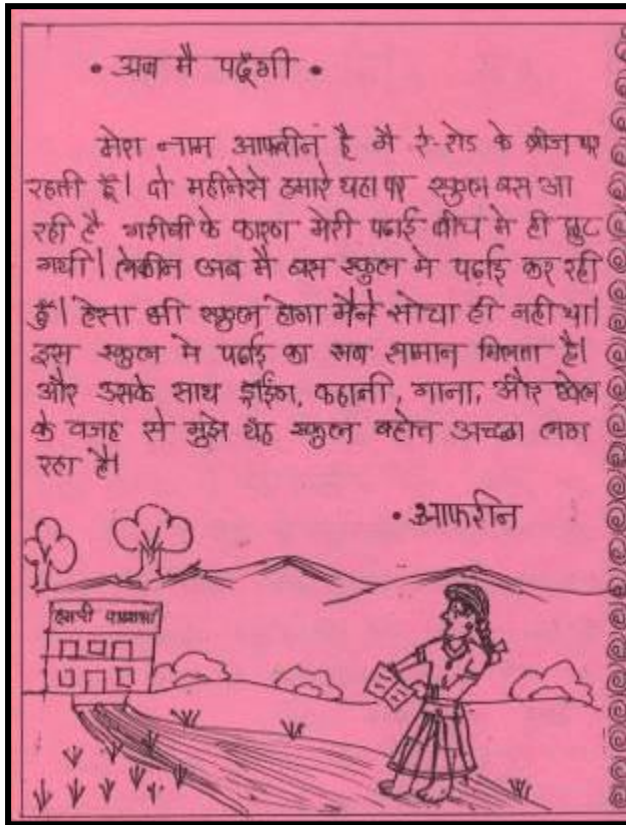 • अब मै पढूँगी •
मेरा नाम आफरीन है मै रे-रोड के ब्रीज पर
रहती हूँ। दो महीनेसे हमारे यहा पर स्कुल बस आ
रही है गरीबी के कारण मेरी पढाई बीच मे ही छुट
गयी। लेकीन अब मै बस स्कुल मे पढाई कर रही
हुँ। ऐसा भी स्कुल होगा मैने सोचा ही नही था।
इस स्कुल मे पढाई का सब सामान मिलता है।
और उसके साथ ड्रॉईंग, कहानी, गाना, और खेल
के वजह से मुझे यह स्कुल बहोत अच्छा लग
रहा है।
• आफरीन